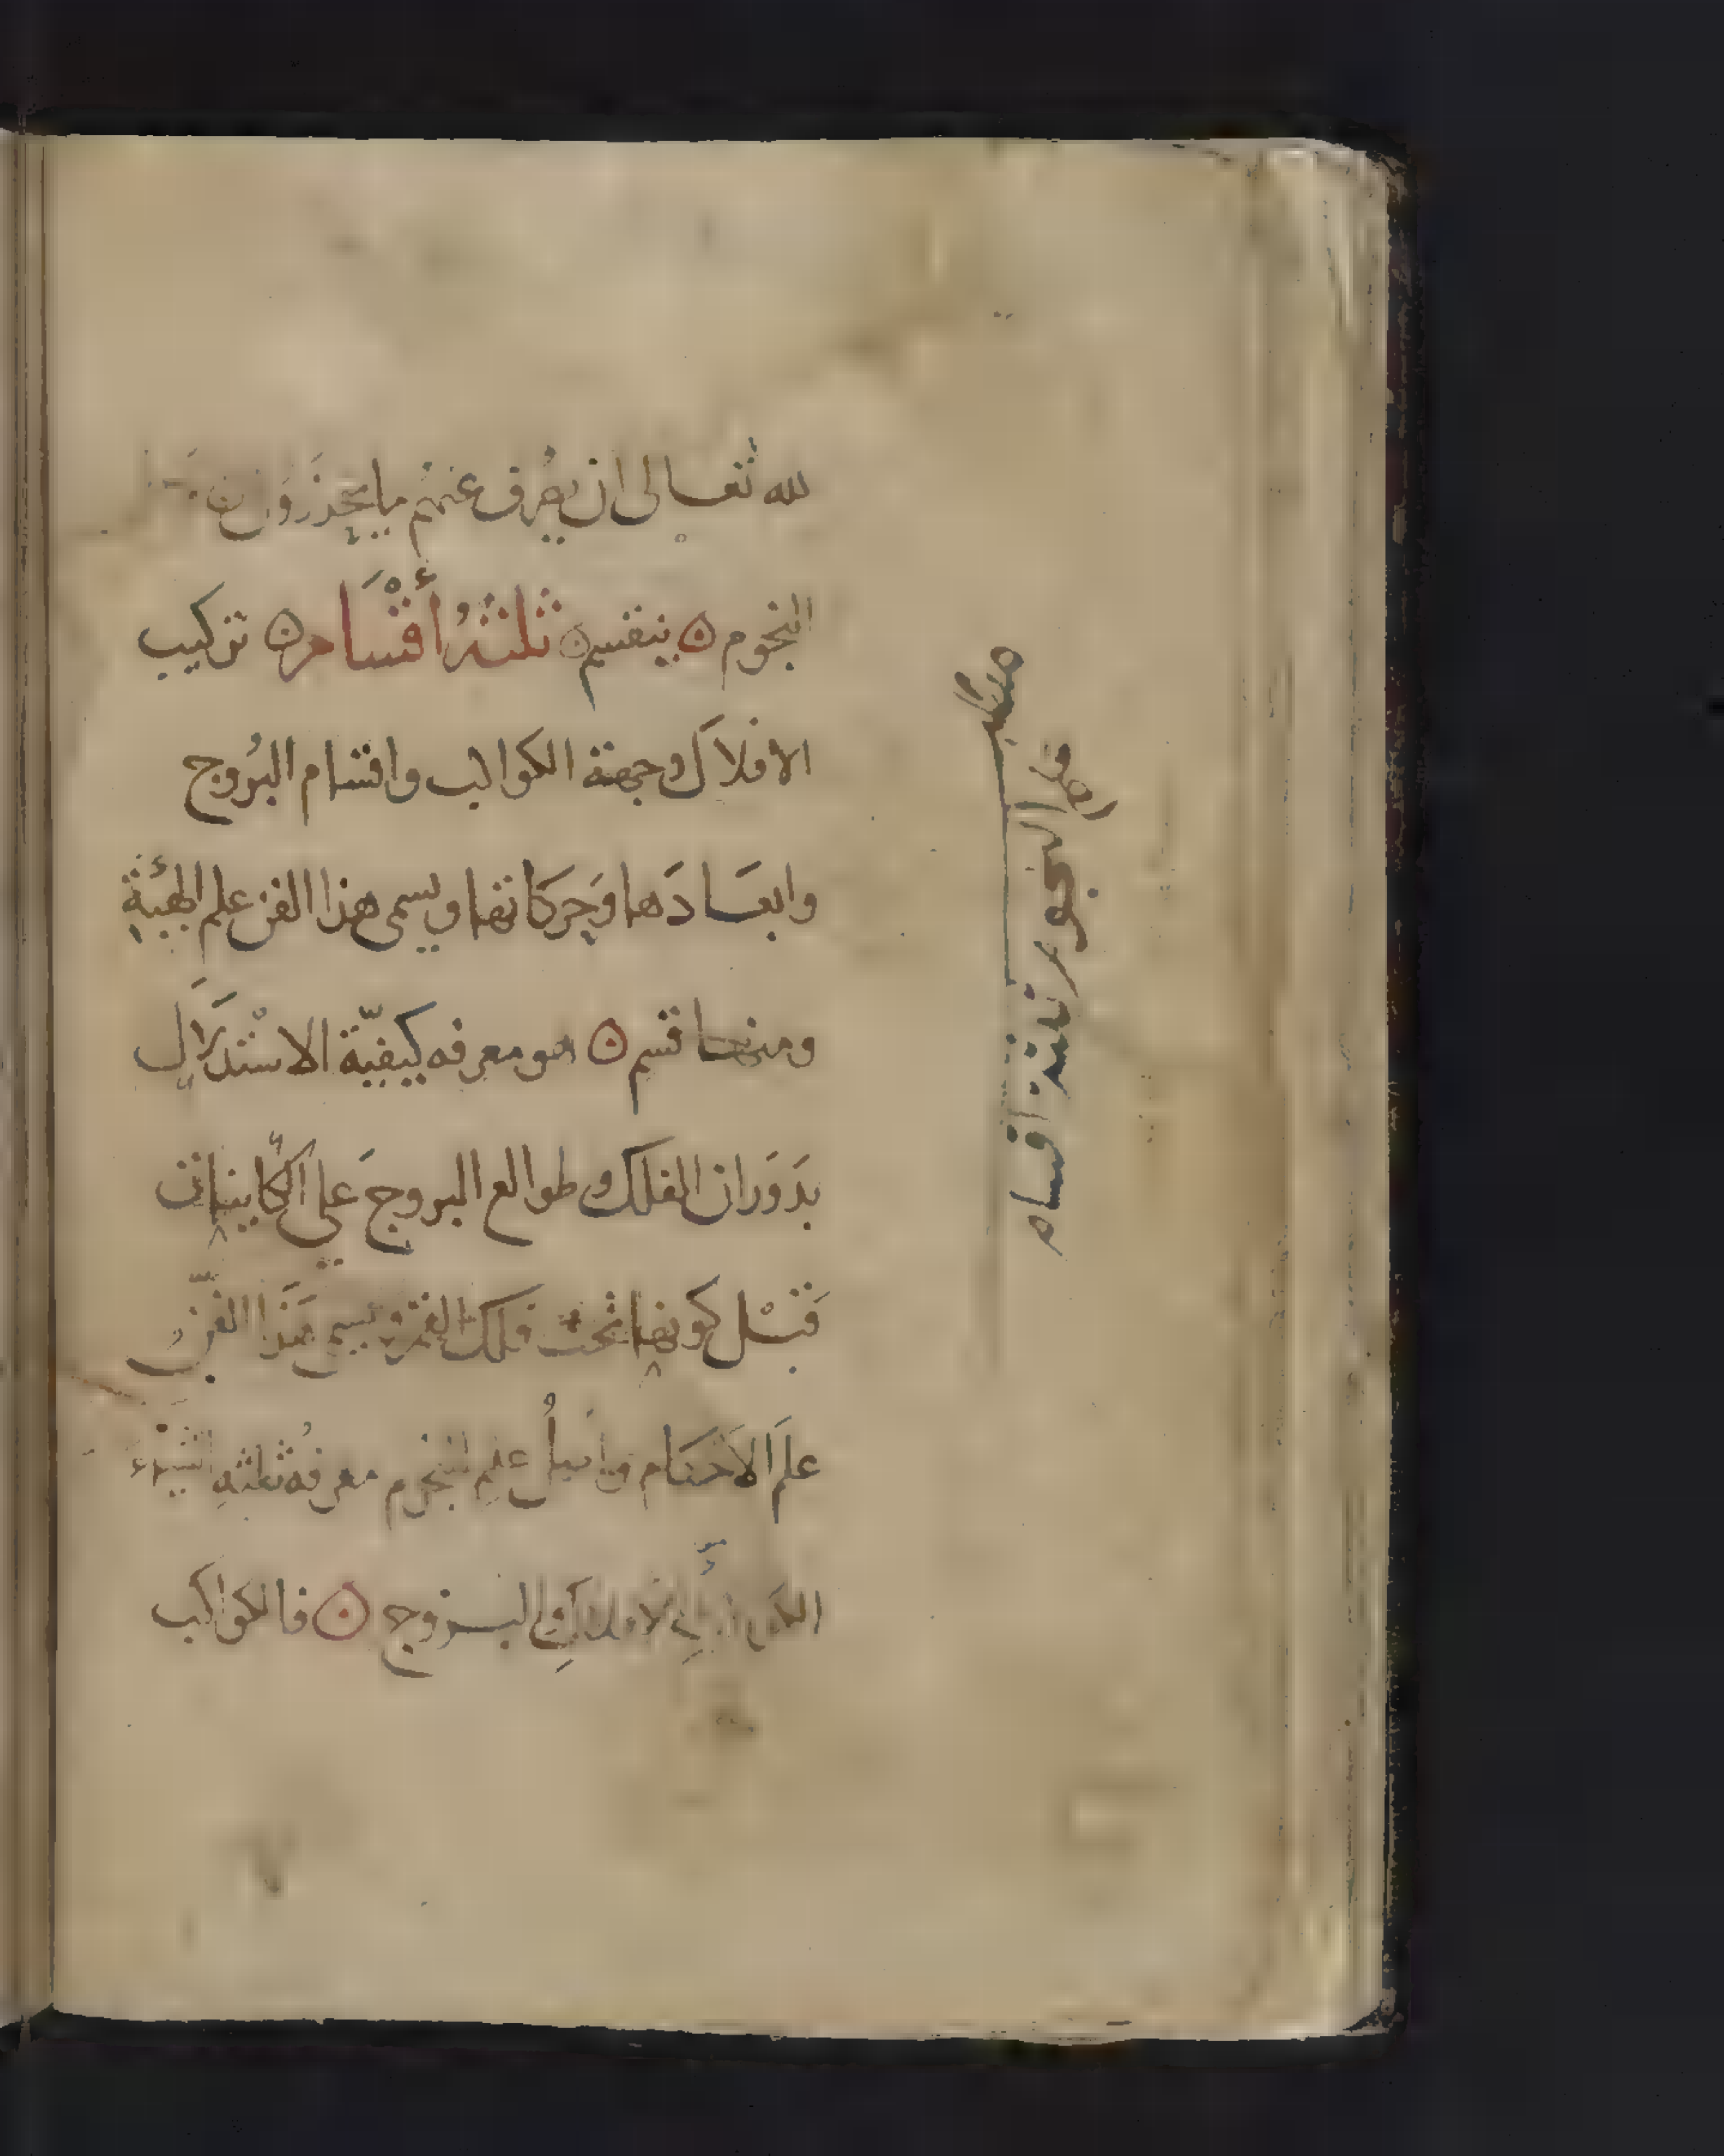 لله تعالى ان يصرف عنهم ما يحذرون
النجوم ينقسم ثلثة أقْسَام تركيب
الافلاك وجهة الكواكب واقسام البُروج
وابعَادَها وَحركَاتها ويسمى هذا الفن علم الهيئة
ومنها قسم هو معرفه كيفيّة الاسْتدلَال
بدَوَران الفلك وطوالع البروج عَلى الكاينات
قَبْل كونها تحت فلك القمر ويسمى هَذا الفنّ
علَم الاَحكَام علم النجوم معرفهُ ثلثهِ اشياء
البروج فالكواكب
مطلب
علم النجوم ثلثة اقسام